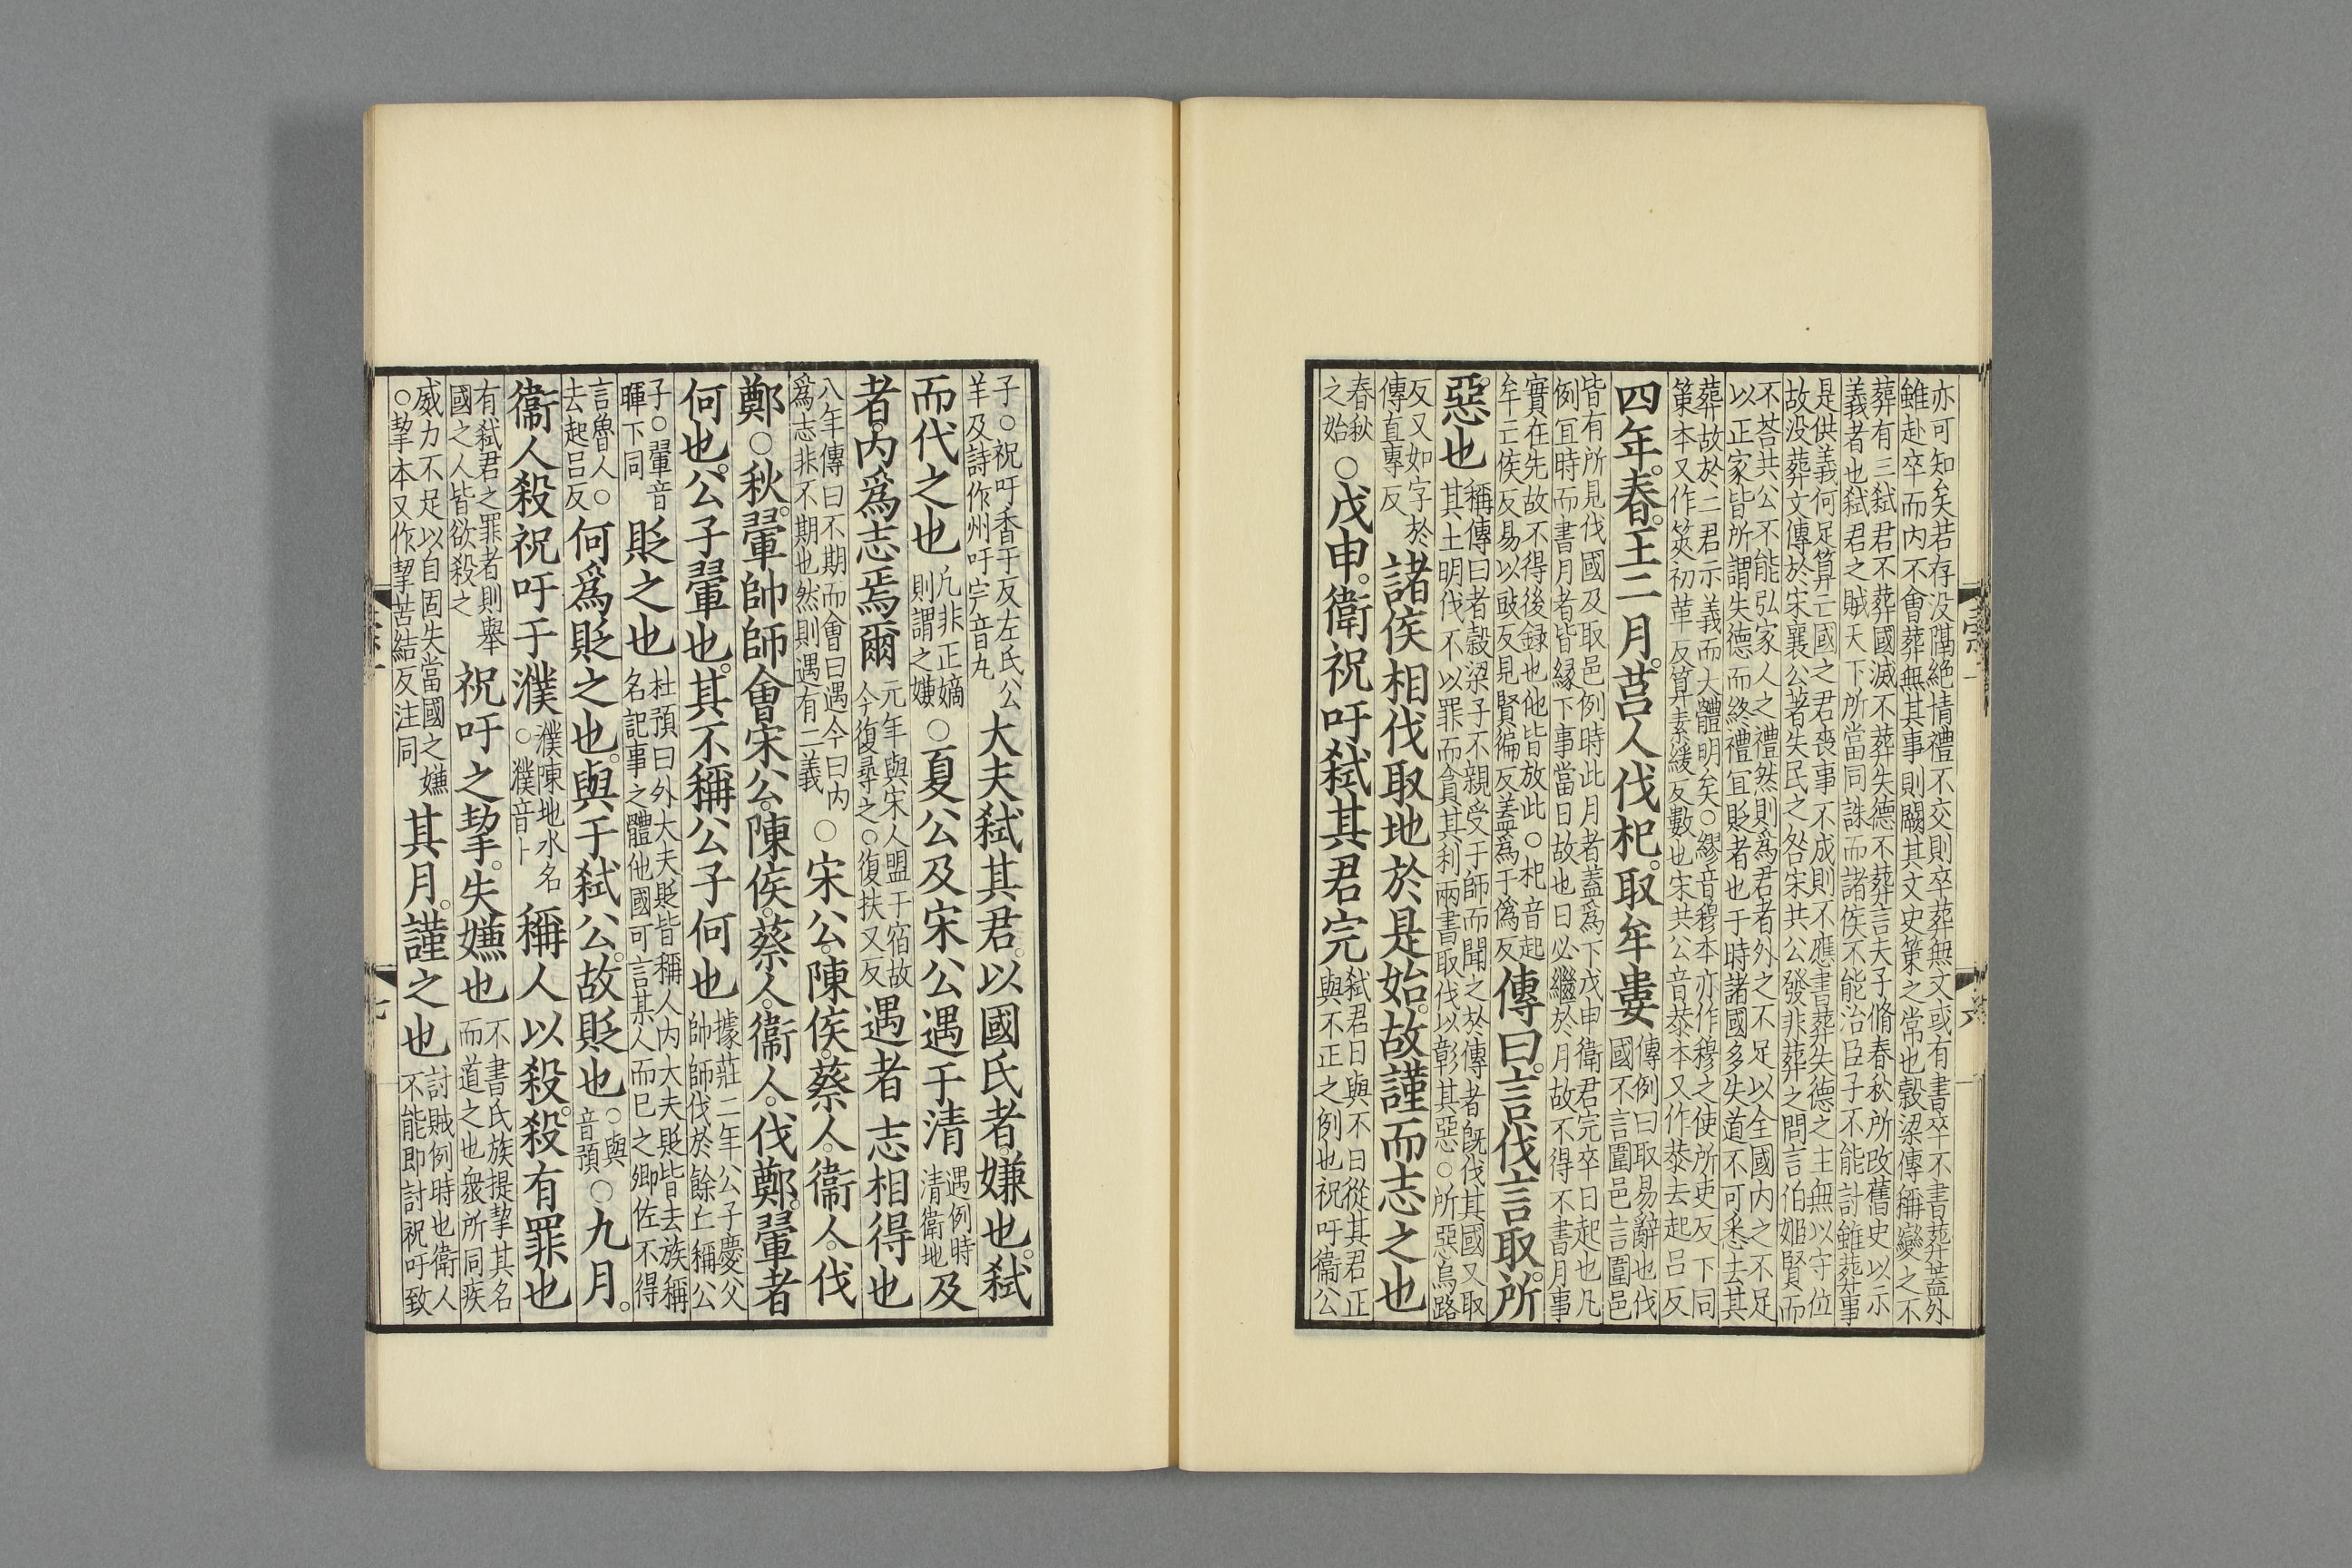 亦可知矣若存没隔絶情禮不交則卒葬無文或有書卒不書葬蓋外
雖赴卒而内不會葬無其事則闕其文史策之常也穀梁傳稱變之不
葬有三弑君不葬國滅不葬失德不葬言夫子脩春秋所改舊史以示
義者也弑君之賊天下所當同誅而諸侯不能治臣子不能討雖葬事
是供義何足算亡國之君喪事不成則不應書葬失德之主無以守位
故没葬文傳於宋襄公著失民之咎宋共公發非葬之問言伯姬賢而
不荅共公不能弘家人之禮然則爲君者外之不足以全國内之不足
以正家皆所謂失德而終禮宜貶者也于時諸國多失道不可悉去其
葬故於二君示義而大體明矣○繆音穆本亦作穆之使所吏反下同
策本又作筴初革反算素緩反數也宋共公音恭本又作恭去起吕反
四年。春。王二月。莒人伐杞。取牟婁傳例曰取易辭也伐國不言圍邑言圍邑
皆有所見伐國及取邑例時此月者蓋爲下戊申衛君完卒日起也凡
例宜時而書月者皆縁下事當日故也日必繼於月故不得不書月事
實在先故不得後録也他皆放此○杞音起牟亡侯反易以豉反見賢徧反蓋爲于僞反傳曰。言伐言取。所
惡。也稱傳曰者穀梁子不親受于師而聞之於傳者既伐其國又取其土明伐不以罪而貪其利兩書取伐以彰其惡○所惡烏路
反又如字於傳直專反諸侯相伐取地於是始。故謹而志之也
春秋之始○戊申。衛祝吁弑其君完弑君日與不日從其君正與不正之例也祝吁衞公
子○祝吁香于反左氏公羊及詩作州吁完音丸大夫弑其君。以國氏者。嫌也。弑
而代之也凡非正嫡則謂之嫌○夏公及宋公遇于清遇例時清衞地及
者。内爲志焉爾元年與宋人盟于宿故今復尋之○復扶又反遇者志相得也
八年傳曰不期而會曰遇今曰内爲志非不期也然則遇有二義○宋公。陳侯。蔡人。衞人。伐
鄭○秋。翬帥師會宋公。陳侯。蔡人。衞人。伐鄭。翬者
何也。公子翬也。其不稱公子何也據莊二年公子慶父帥師伐於餘丘稱公
子○翬音暉下同貶之也杜預曰外大夫貶皆稱人内大夫貶皆去族稱名記事之體他國可言某人而己之卿佐不得
言魯人○去起吕反何爲貶之也。與于弑公。故貶也○與音預○九月。
衞人殺祝吁于濮濮陳地水名○濮音卜稱人以殺。殺有罪也
有弑君之罪者則舉國之人皆欲殺之祝吁之挈。失嫌也不書氏族提挈其名而道之也衆所同疾
威力不足以自固失當國之嫌○挈本又作挈苦結反注同其月。謹之也討賊例時也衛人不能即討祝吁致